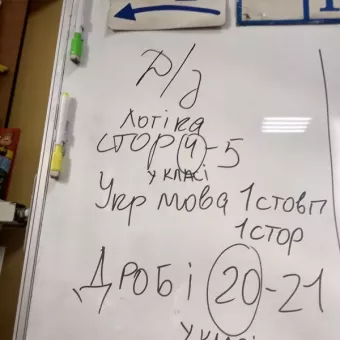 Д/з
Логіка
стор 4-5
у класі
Укр мова 1 стовп
1 стор
Дробі 20-21
у класі